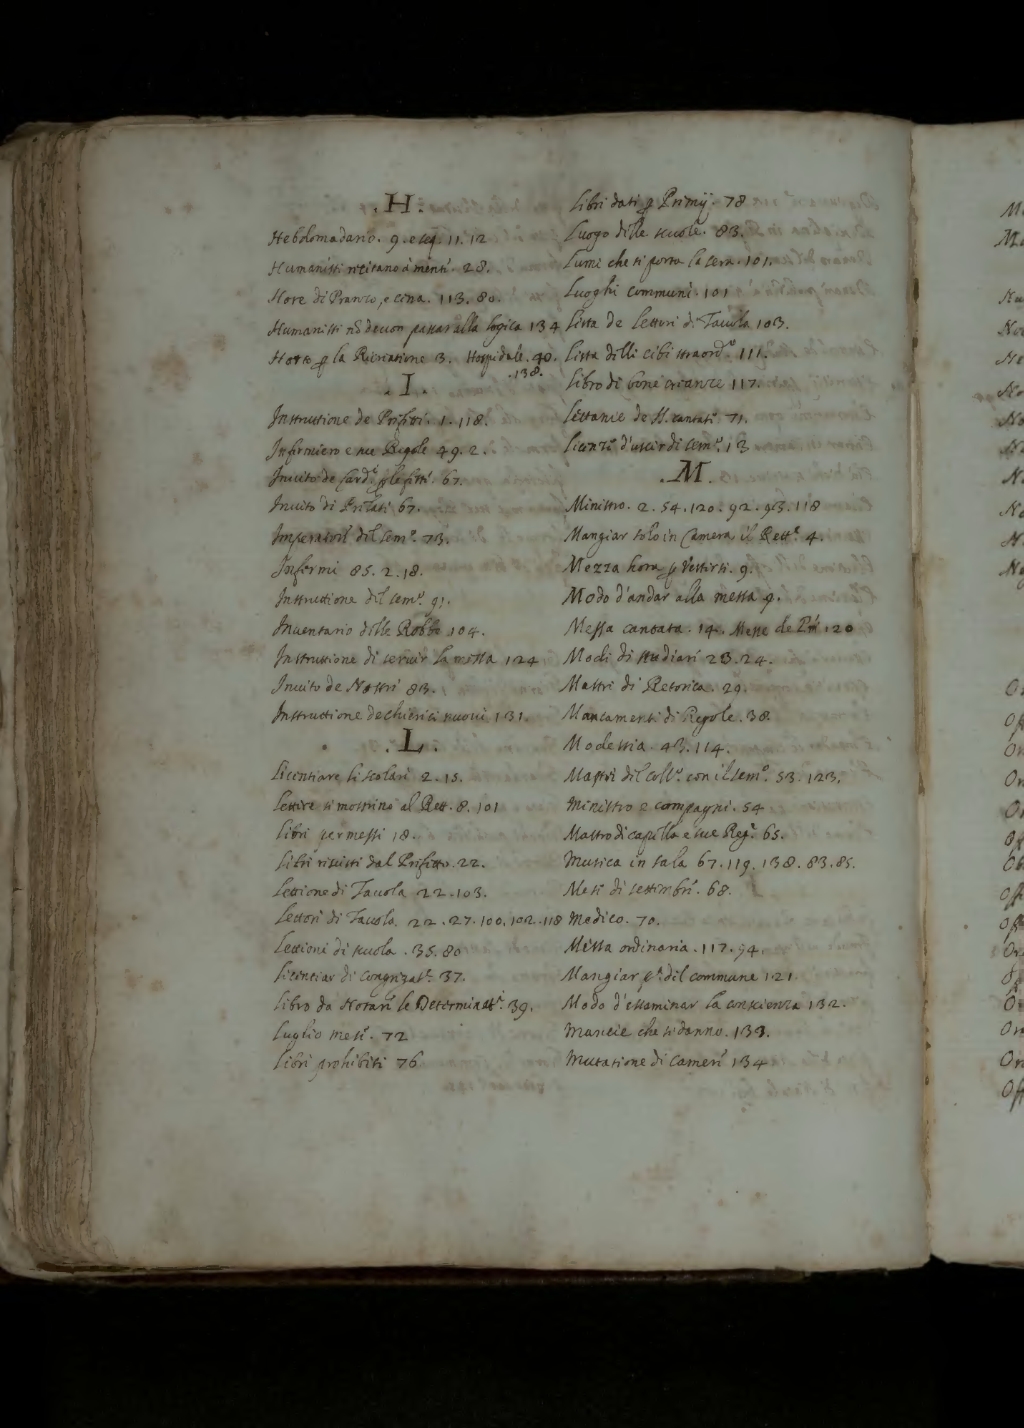 .H.
Hebdomadario. 9. e seq. 11. 12
Humanisti recitano à menti. 28.
Hore di Pranzo, e cena. 113. 80.
Humanisti nõ deuon passar alla logica 134
la Recreatione 3. Hospidale. 40.
.138.
.I.
Instruttione de Prefetti. 1. 118.
Infirmiero e sue Regole 49. 2.
Inuito de Card.
Inuito di Prelati 67.
Imperatori del Sem.º 73.
Infermi 85. 2. 18.
Instruttione del sem.º 91.
Inuentario delle Robbe 104.
Instruttione di seruir la messa 124
Inuito de Nostri 83.
Instruttione de chierici nuoui 131.
.L.
Licentiare li scolari 2. 15.
Lettere si mostrino al Rett. 8. 101
Libri permessi 18.
Libri riuisti dal Prefetto. 22.
Lettione di Tauola 22. 103.
Lettori di Tauola. 22. 27. 100. 102. 118
Lettioni di scuola. 35. 80
Licentiar di Congregat.ᵉ 37.
Libro da Notari le Determinatⁱ. 39.
Luglio mesi. 72
Libri prohibiti 76
Libri dati ꝑ Premij. 78
Luogo delle scuole. 83.
Lumi che si porta la cera. 101.
Luoghi communi. 101
Lista de Lettori di Tauola 103.
Lista delli cibi straord.ⁱ 111.
Libro di bone creanze 117.
Lettanie de SS. cantati. 71.
Licenze d'uscir di sem.º 13
.M.
Ministro. 2. 54. 120. 92. 93. 118
Mangiar solo in Camera il Rett.ᵉ 4.
Mezza hora ꝑ Vestirsi. 9.
Modo d'andar alla messa 9.
Messa cantata. 14. Messe de 120
Modi di studiari 23. 24.
Mastri di Retorica. 29.
Mancamenti di Regole. 38.
Modestia. 43. 114.
Mastri del coll.º con il sem.º 53. 123.
Ministro e compagni. 54
Mastro di capella e sue Reg.ᵉ 65.
Musica in sala 67. 119. 138. 83. 85.
Mesi di settembri. 68.
Medico. 70.
Messa ordinaria. 117. 94.
Mangiar del commune 121
Modo d'essaminar la conscienza 132.
Mancie che si danno. 133.
Mutatione di Cameri 134